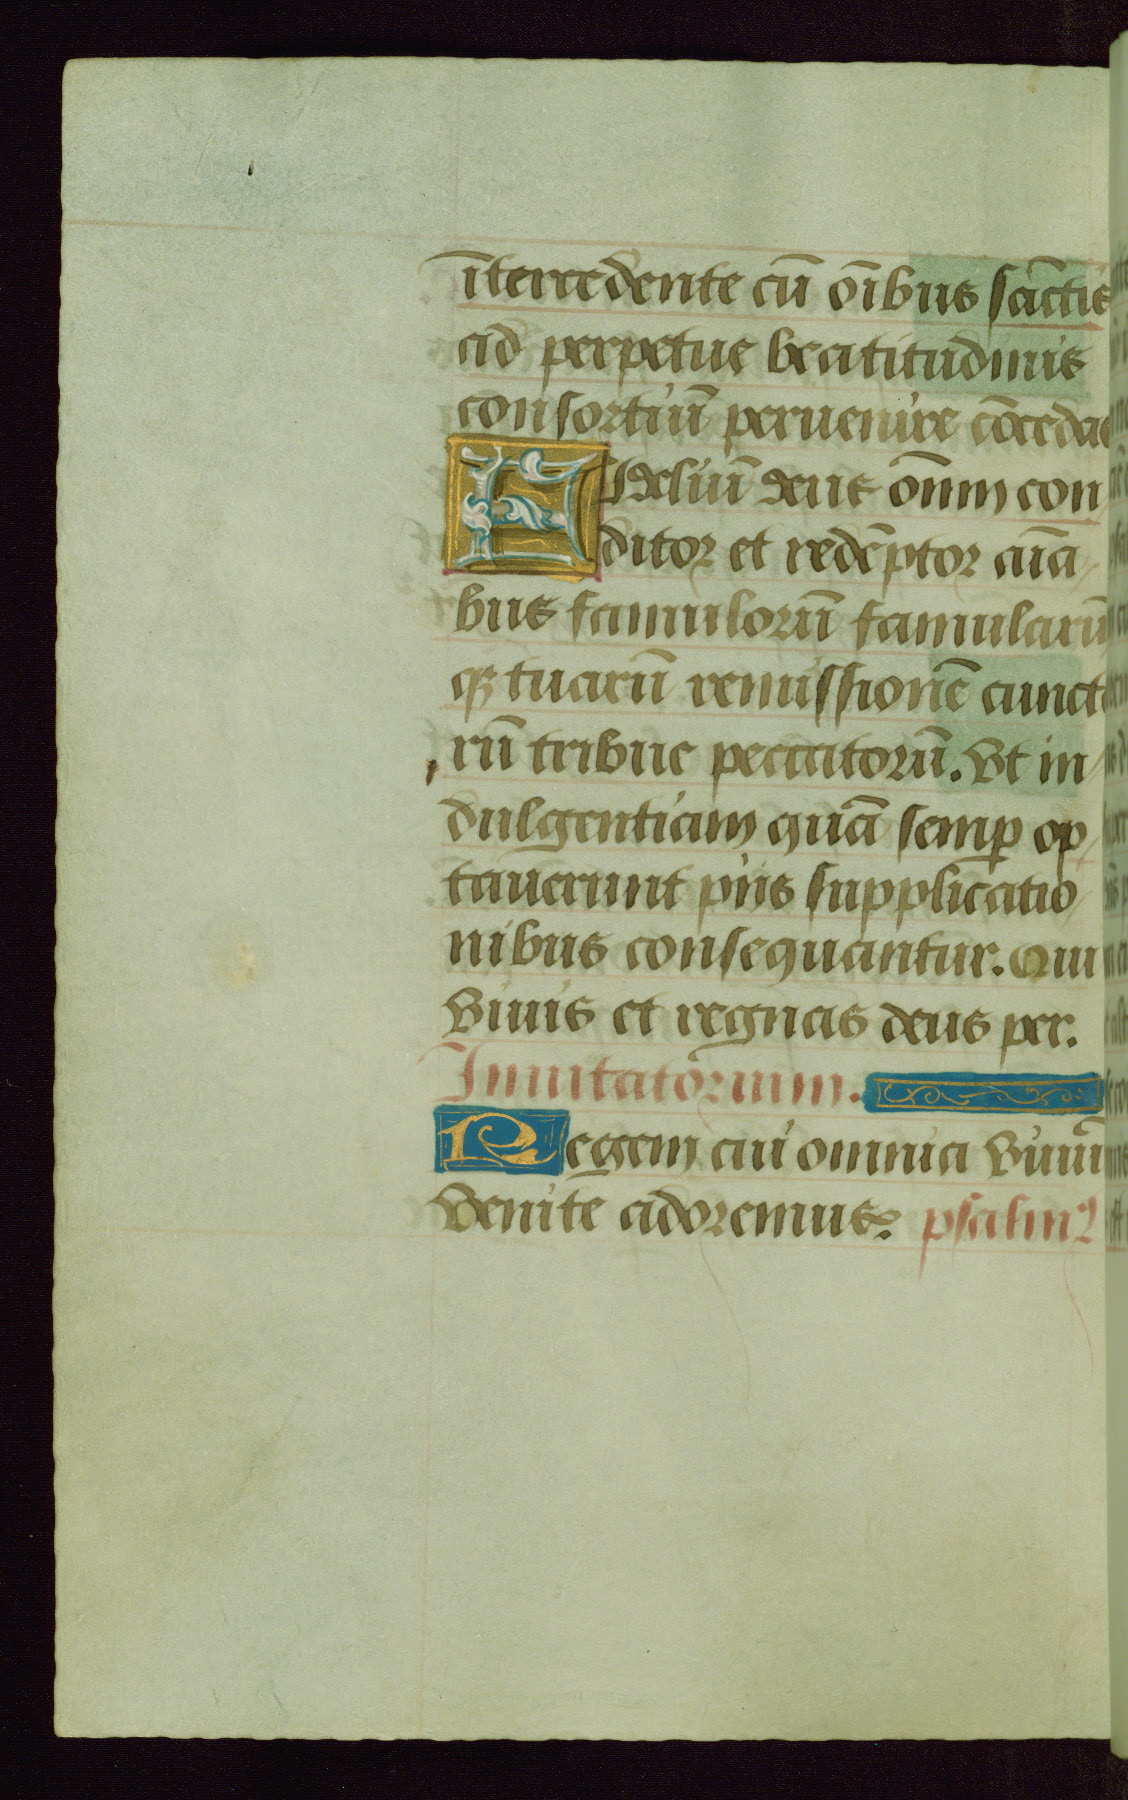 īntercedente cū oībus sāctis
ad perpetue beatitudinis
consortiū peruenire cōcedas
Fidelium deus om̄m con
ditor et redēptor aīa
bus famulorū famularū
qꝫ tuarū remissionē cuncto
rū tribue peccatorū. Vt in
dulgentiam quā semꝑ op
tauerunt piis supplicatio
nibus consequantur. Qui
viuis et regnas deus per.
Inuitatorium.
Regem cui omnia viuūt
Venite adoremus. psalmꝰ